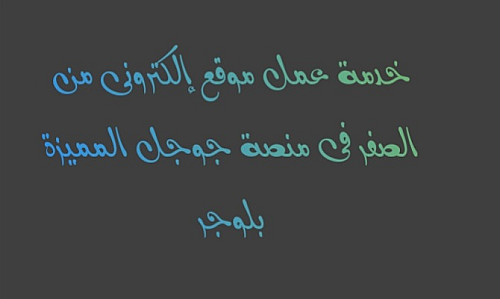 خدمة عمل موقع إلكترونى من
الصفر فى منصة جوجل المميزة
بلوجر